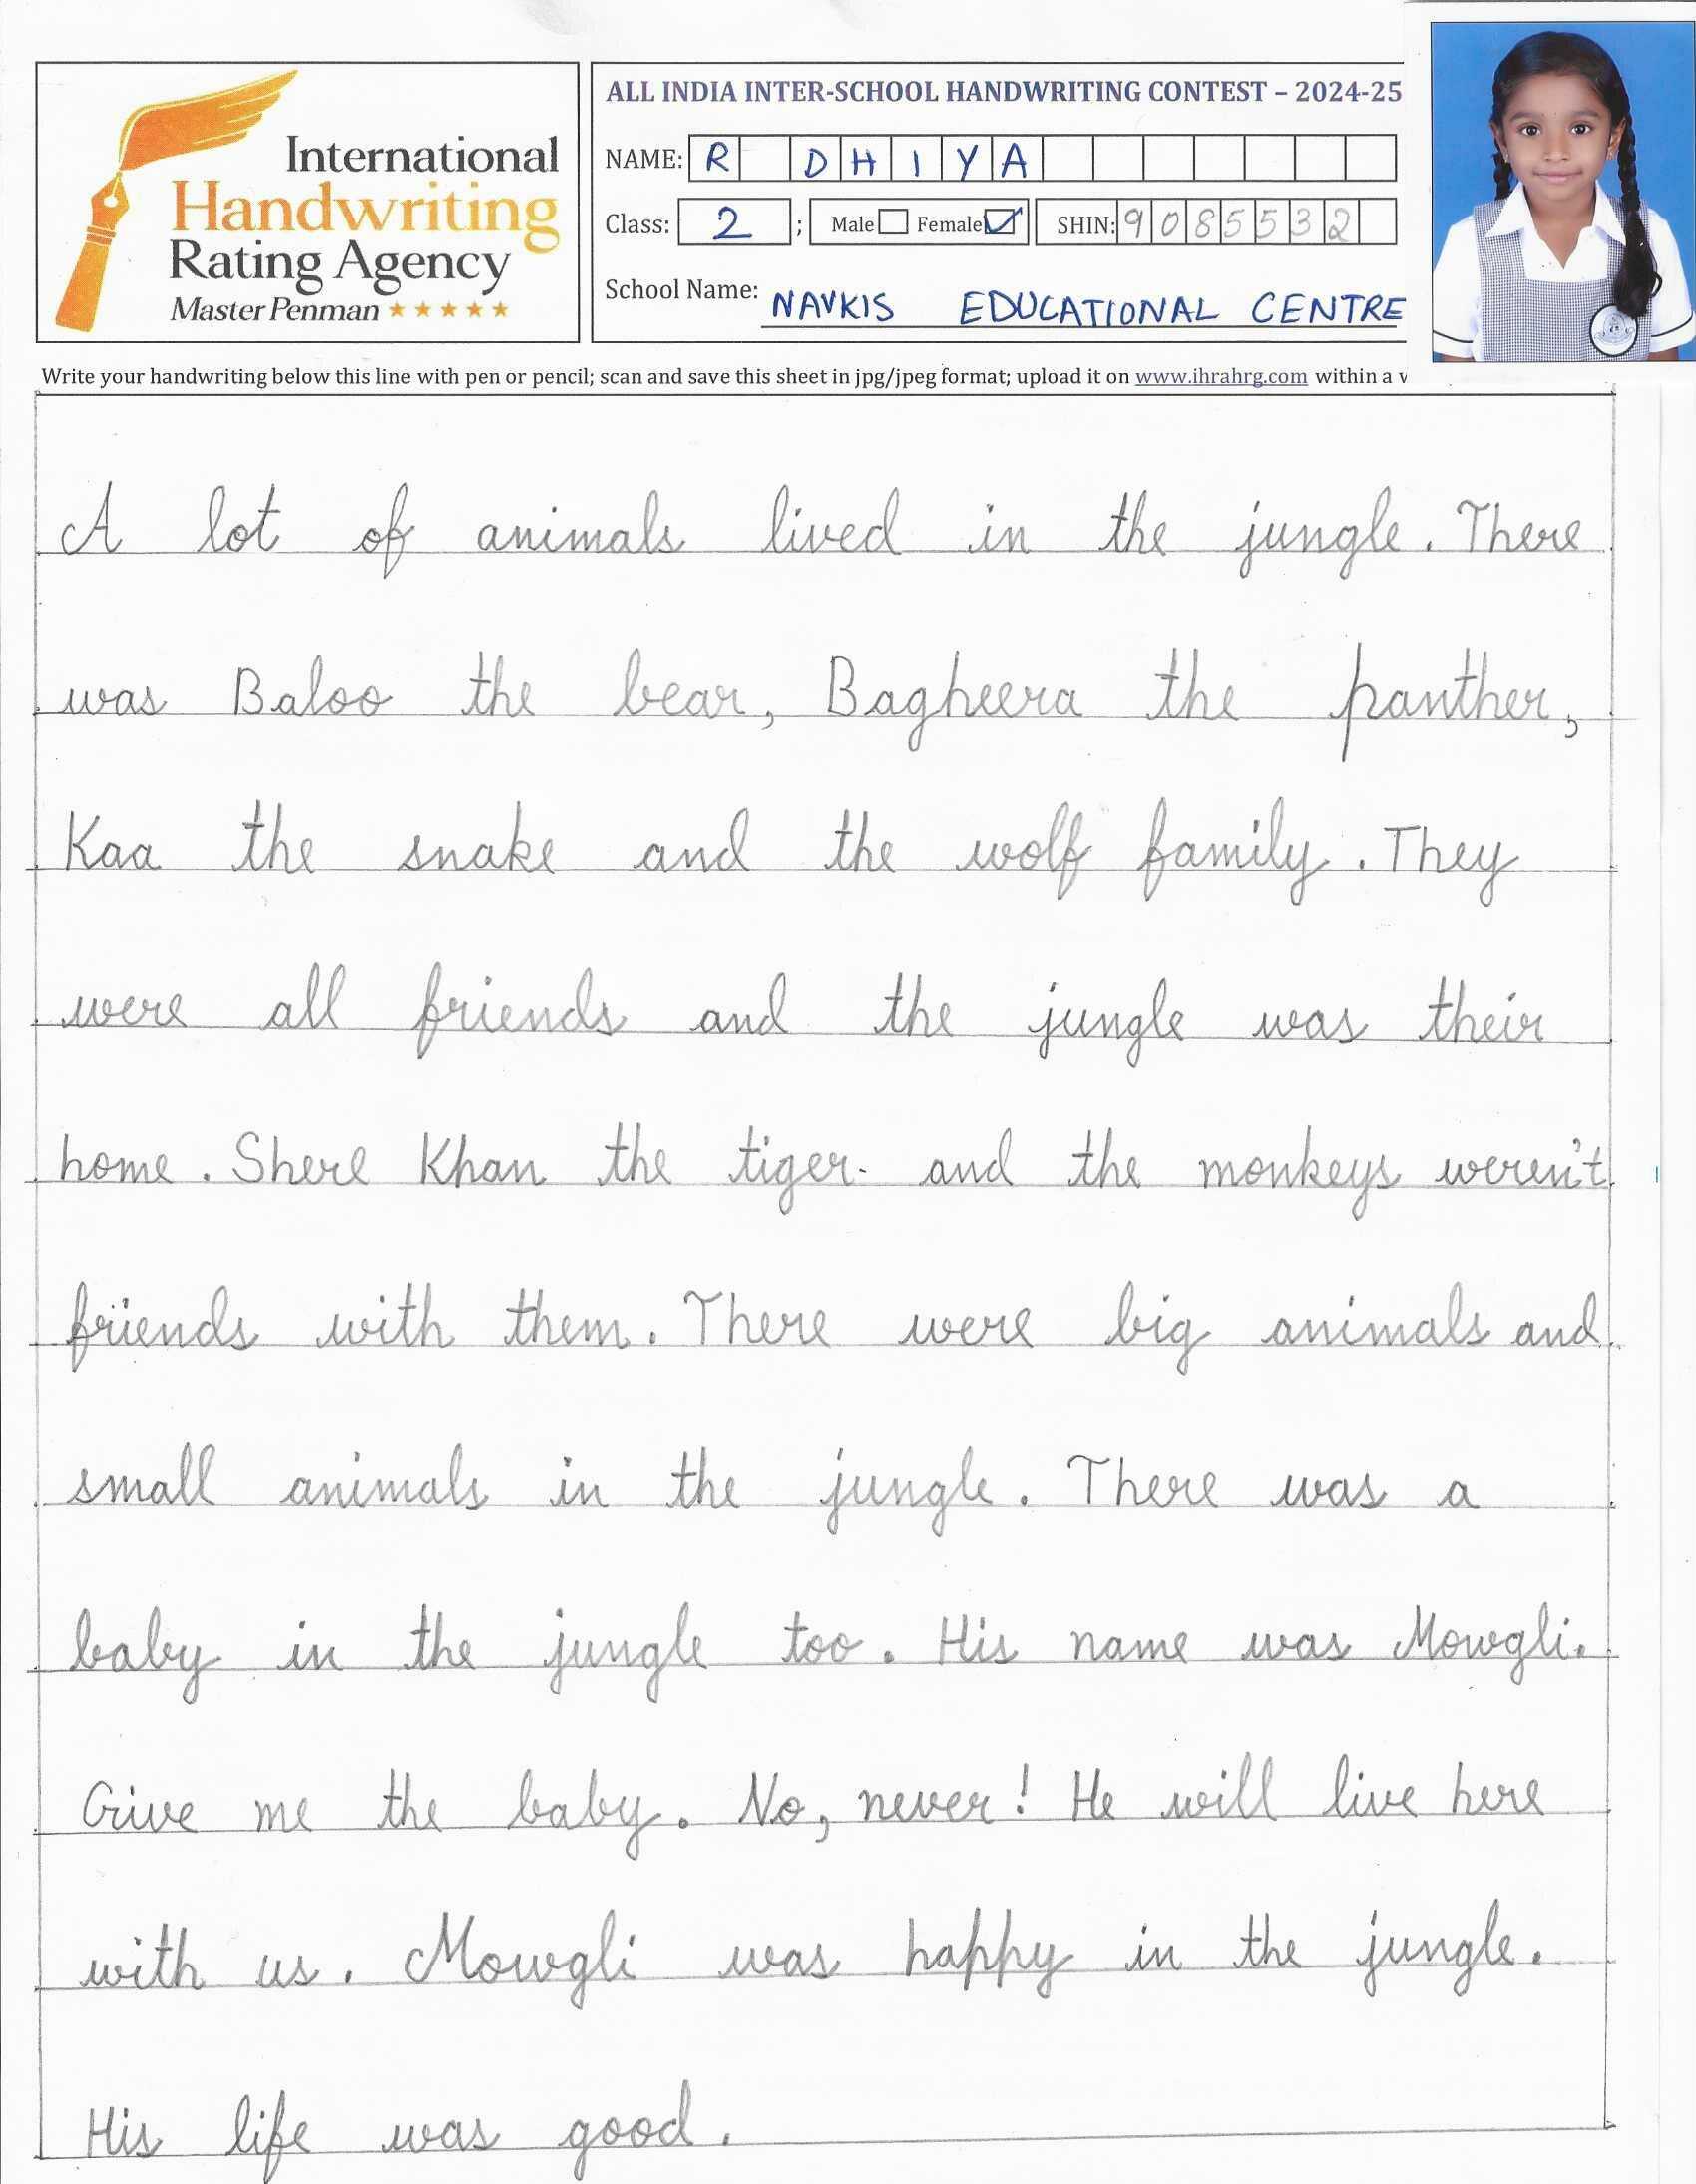 International
Handwriting
Rating Agency
Master Penman
ALL INDIA INTER-SCHOOL HANDWRITING CONTEST – 2024-25
NAME: R DHIYA
Class: 2 ; Male Female SHIN: 9085532
School Name: NAVKIS EDUCATIONAL CENTRE
Write your handwriting below this line with pen or pencil; scan and save this sheet in jpg/jpeg format; upload it on www.ihrahrg.com within a
A lot of animals lived in the jungle. There
was Baloo the bear, Bagheera the panther,
Kaa the snake and the wolf family. They
were all friends and the jungle was their
home. Shere Khan the tiger and the monkeys weren't
friends with them. There were big animals and
small animals in the jungle. There was a
baby in the jungle too. His name was Mowgli.
Give me the baby. No, never! He will live here
with us. Mowgli was happy in the jungle.
His life was good.